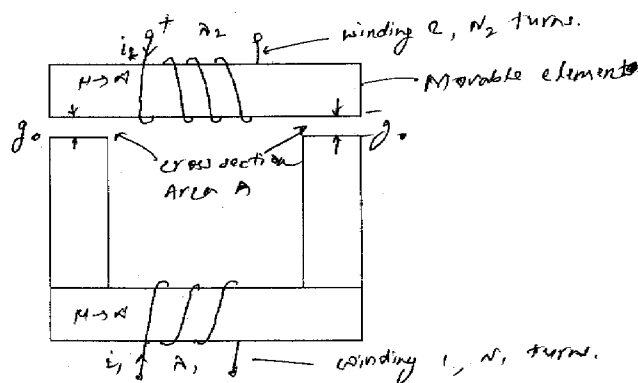 i₂ + λ₂
winding 2, N₂ turns.
μ→∞
Movable element
g₀
g₀
cross section
Area A
μ→∞
i₁ λ₁
winding 1, N₁ turns.